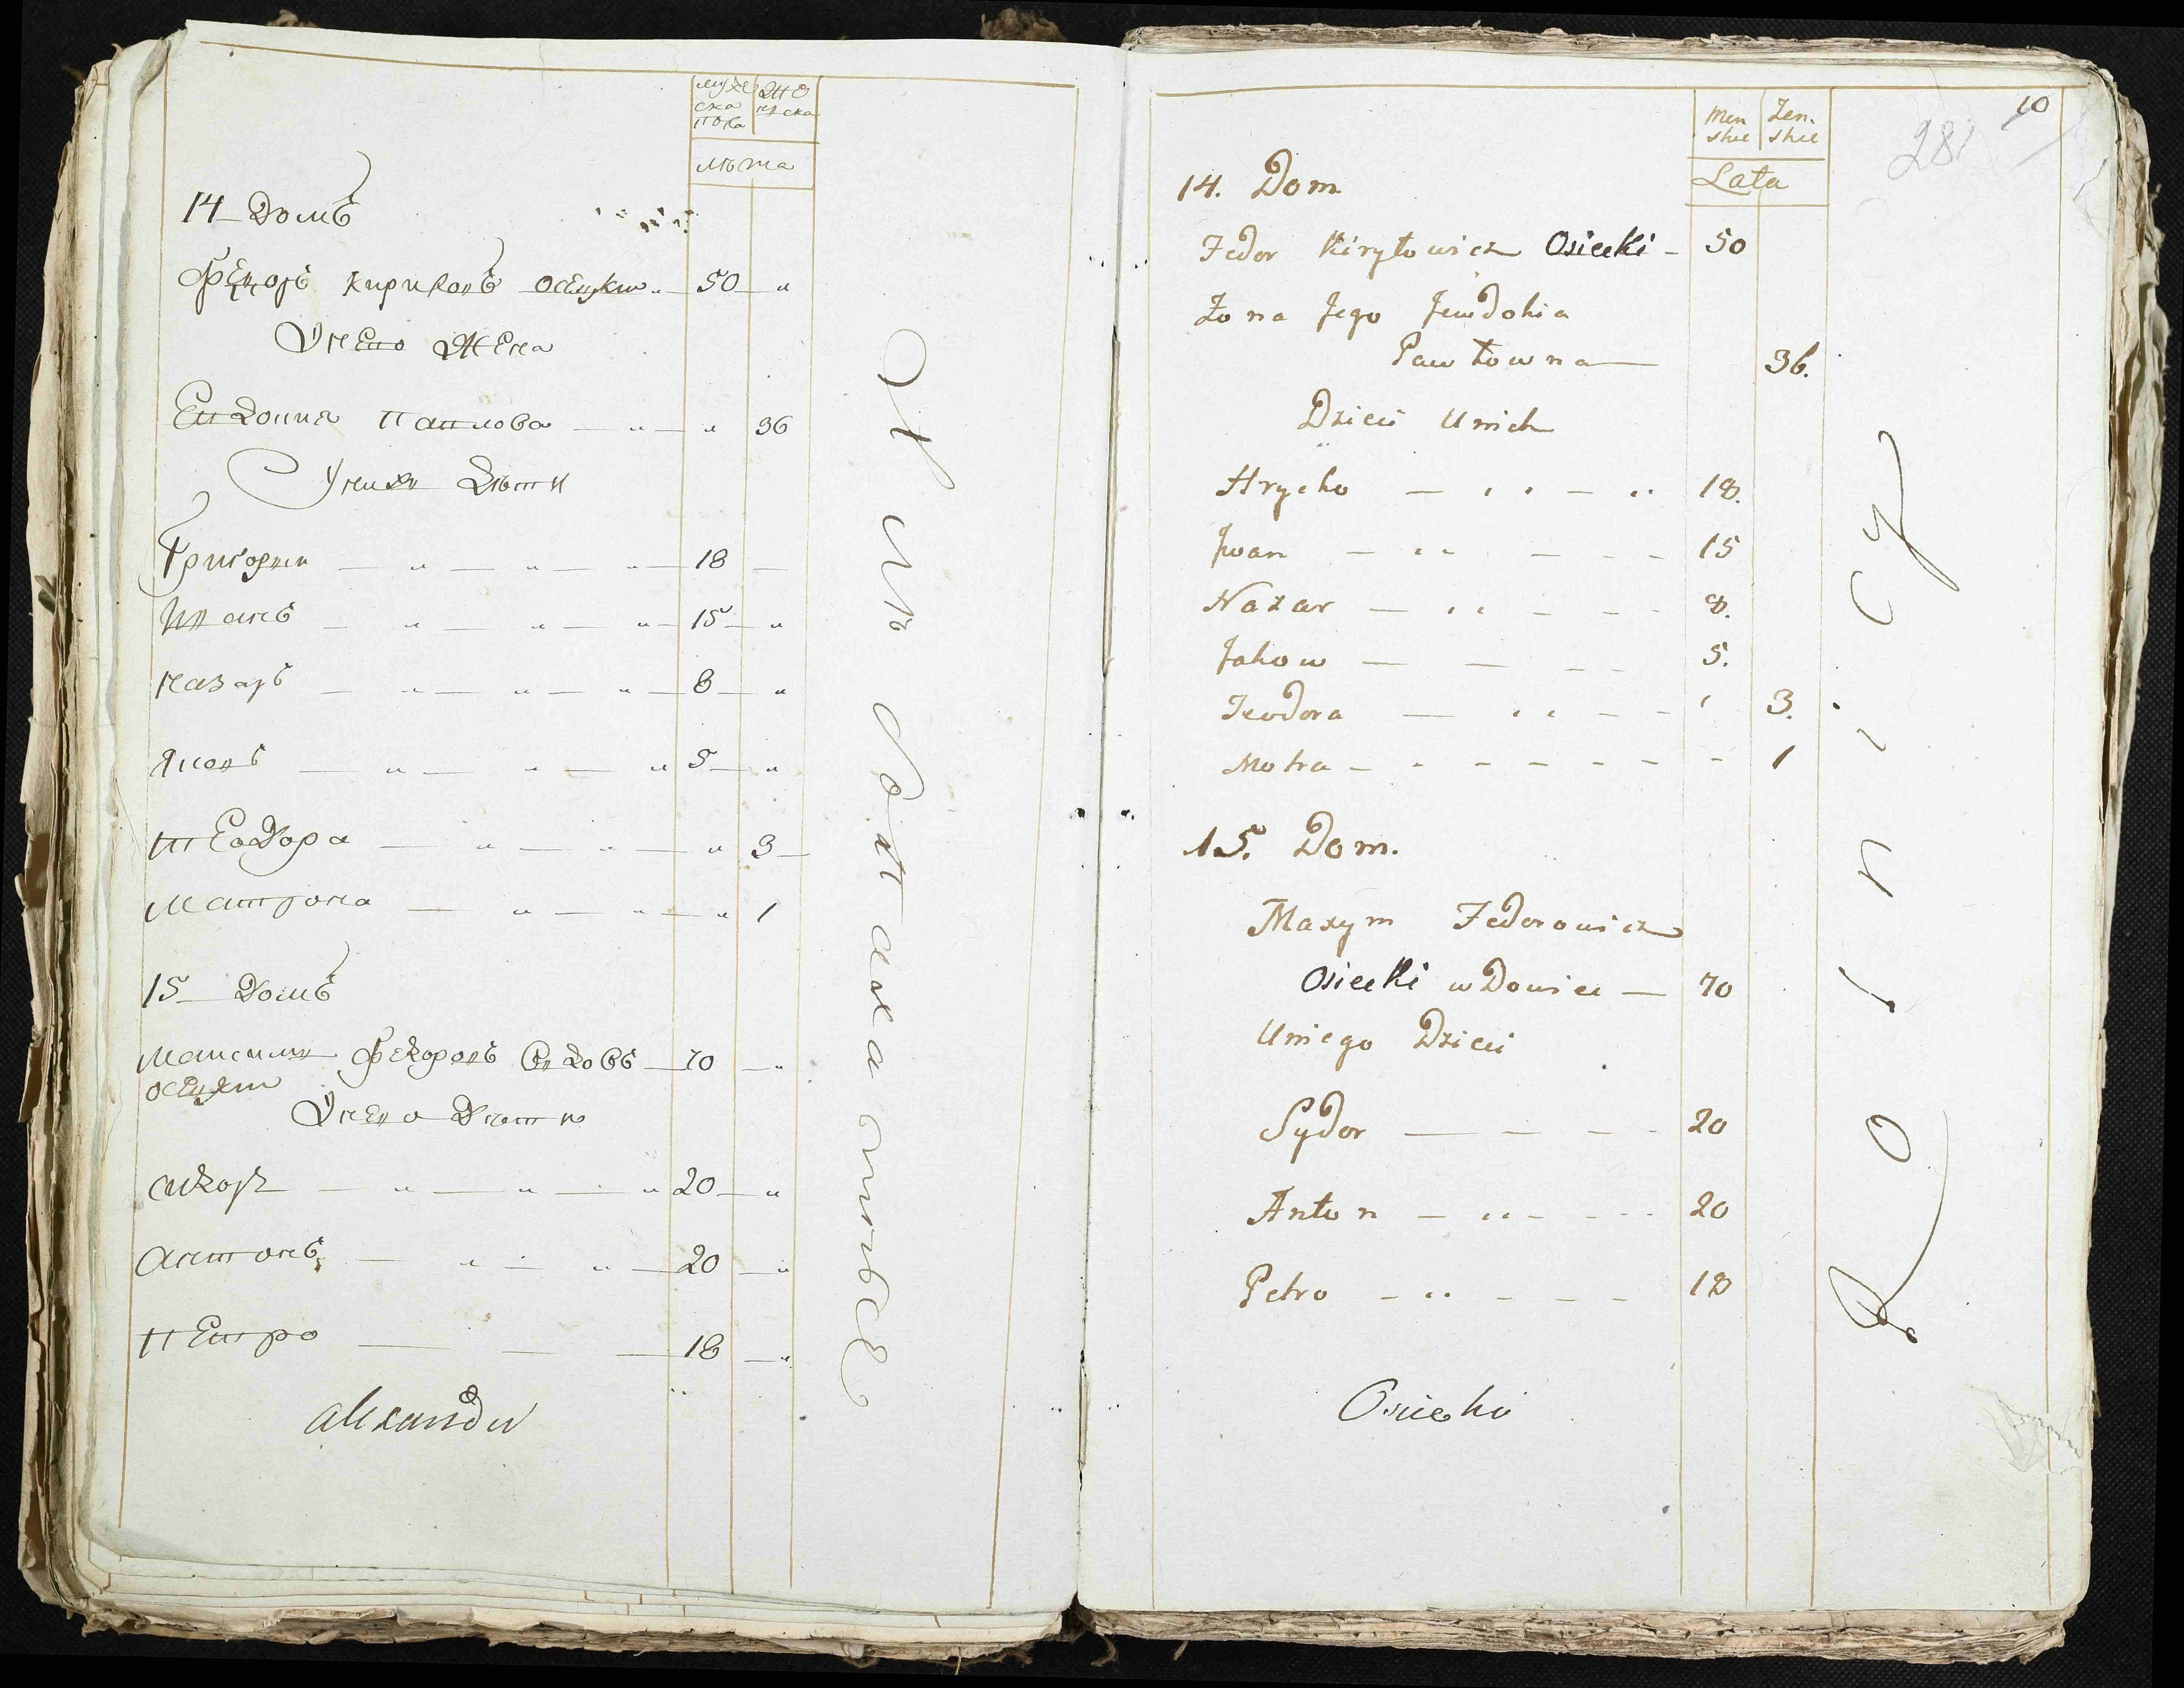 муже
ска
пола
же
нска
лѣта
14 Домъ
Феодоръ Кириловъ Осецки 50 „
У него Жена
Евдокия Павлова — „ — „ 36
У них Дѣти
Григорий — „ — „ — „ — 18 —
Иванъ — „ — „ — „ — 15 — „
Назаръ — „ — „ — „ — 8 — „
Яковъ — „ — „ — „ 5 — „
Теодора — „ — „ — „ 3 —
Матрона — „ — „ — „ 1
15 Домъ
Максимъ Федоровъ Вдовъ — 70 — „
Осецки
У него Дѣти
Сидоръ — „ — „ — „ 20 — „
Антонъ — „ — „ — 20 — „
Петро — — — 18 — „
Alexander
10
281
Men
skie
Żen.
skie
Lata
14. Dom
Fedor Kiryłowicz Osiecki - 50
Żona Jego Jewdokia
Pawłowna — 36.
Dzieci U nich
Hryćko — 18.
Jwan — 15
Nazar — 8.
Jakow — 5.
Teodora — 3.
Motra — 1
15. Dom.
Maxym Fedorowicz
Osiecki wDowiec — 70
U niego Dzieci
Sydor — 20
Anton — 20
Petro — 18
Osiecki
Rolnicy